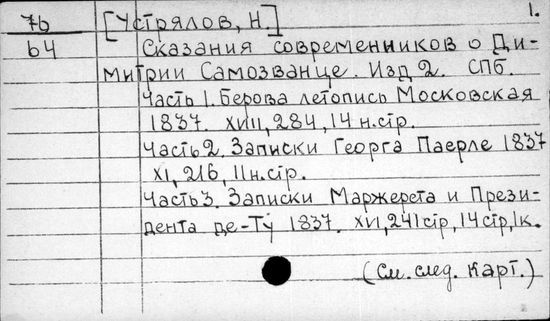 7б [Устрялов, Н.] 1.
64 Сказания современников о Ди-
митрии Самозванце. Изд 2. СПб.
Часть 1. Берова летопись Московская
1837. XVIII, 284, 14 н.стр.
Часть 2. Записки Георга Паерле 1837
XI, 216, 11 н.стр.
Часть 3. Записки Маржерета и Прези-
дента де-Ту 1837. XVI, 241 стр, 14 стр, 1 к.
(См. след. карт.)